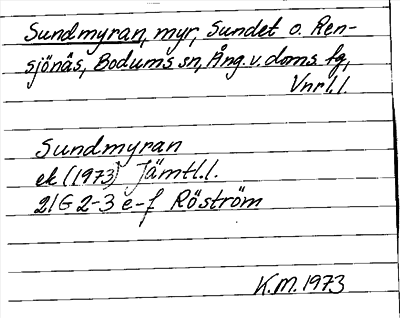 Sundmyran, myr, Sundet o. Ren-
sjönäs, Bodums sn, Ång.v.doms fg,
Vnrl.l
Sundmyran
ek (1973) Jämtl.l.
21G 2-3 e-f Röström
K.M. 1973